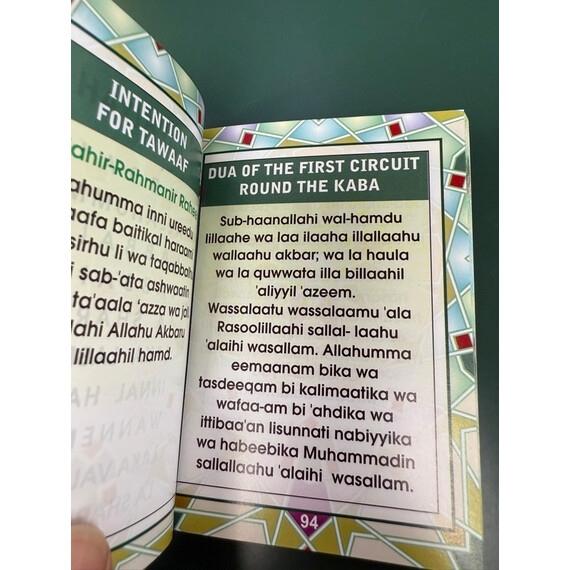 INTENTION
FOR TAWAAF
ahir-Rahmanir Rahe
ahumma inni ureedu
aafa baitikal haraam
sirhu li wa taqabbalh
i sab-'ata ashwaatin
ta'aala 'azza wa jal
lahi Allahu Akbaru
lillaahil hamd.
DUA OF THE FIRST CIRCUIT
ROUND THE KABA
Sub-haanallahi wal-hamdu
lillaahe wa laa ilaaha illallaahu
wallaahu akbar; wa la haula
wa la quwwata illa billaahil
'aliyyil 'azeem.
Wassalaatu wassalaamu 'ala
Rasoolillaahi sallal- laahu
'alaihi wasallam. Allahumma
eemaanam bika wa
tasdeeqam bi kalimaatika wa
wafaa-am bi 'ahdika wa
ittibaa'an lisunnati nabiyyika
wa habeebika Muhammadin
sallallaahu 'alaihi wasallam.
94